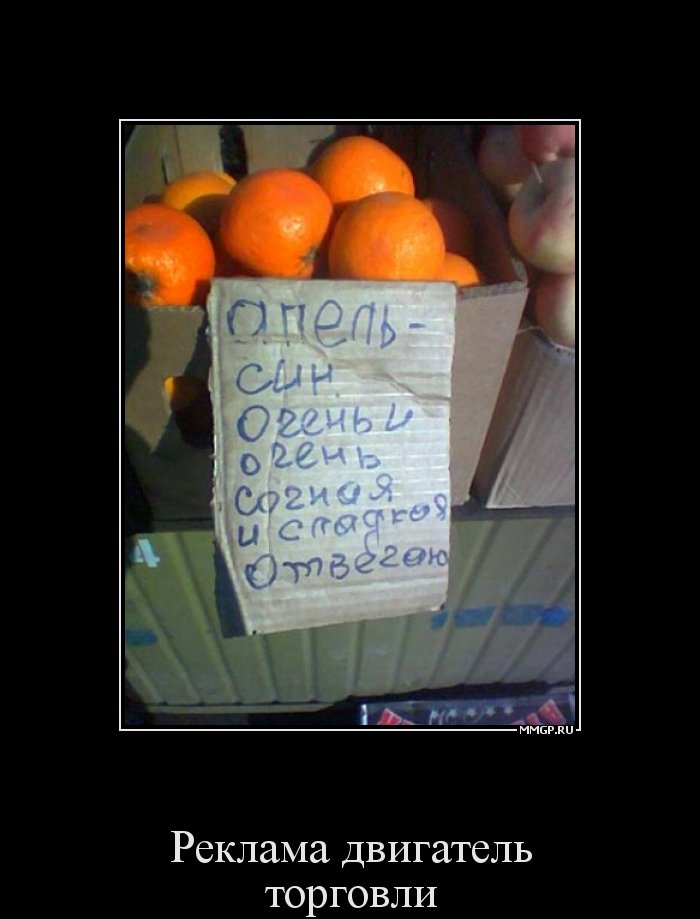 Опель-
син
очень и
очень
сочная
и сладкая
Отвечаю
MMGP.RU
Реклама двигатель
торговли